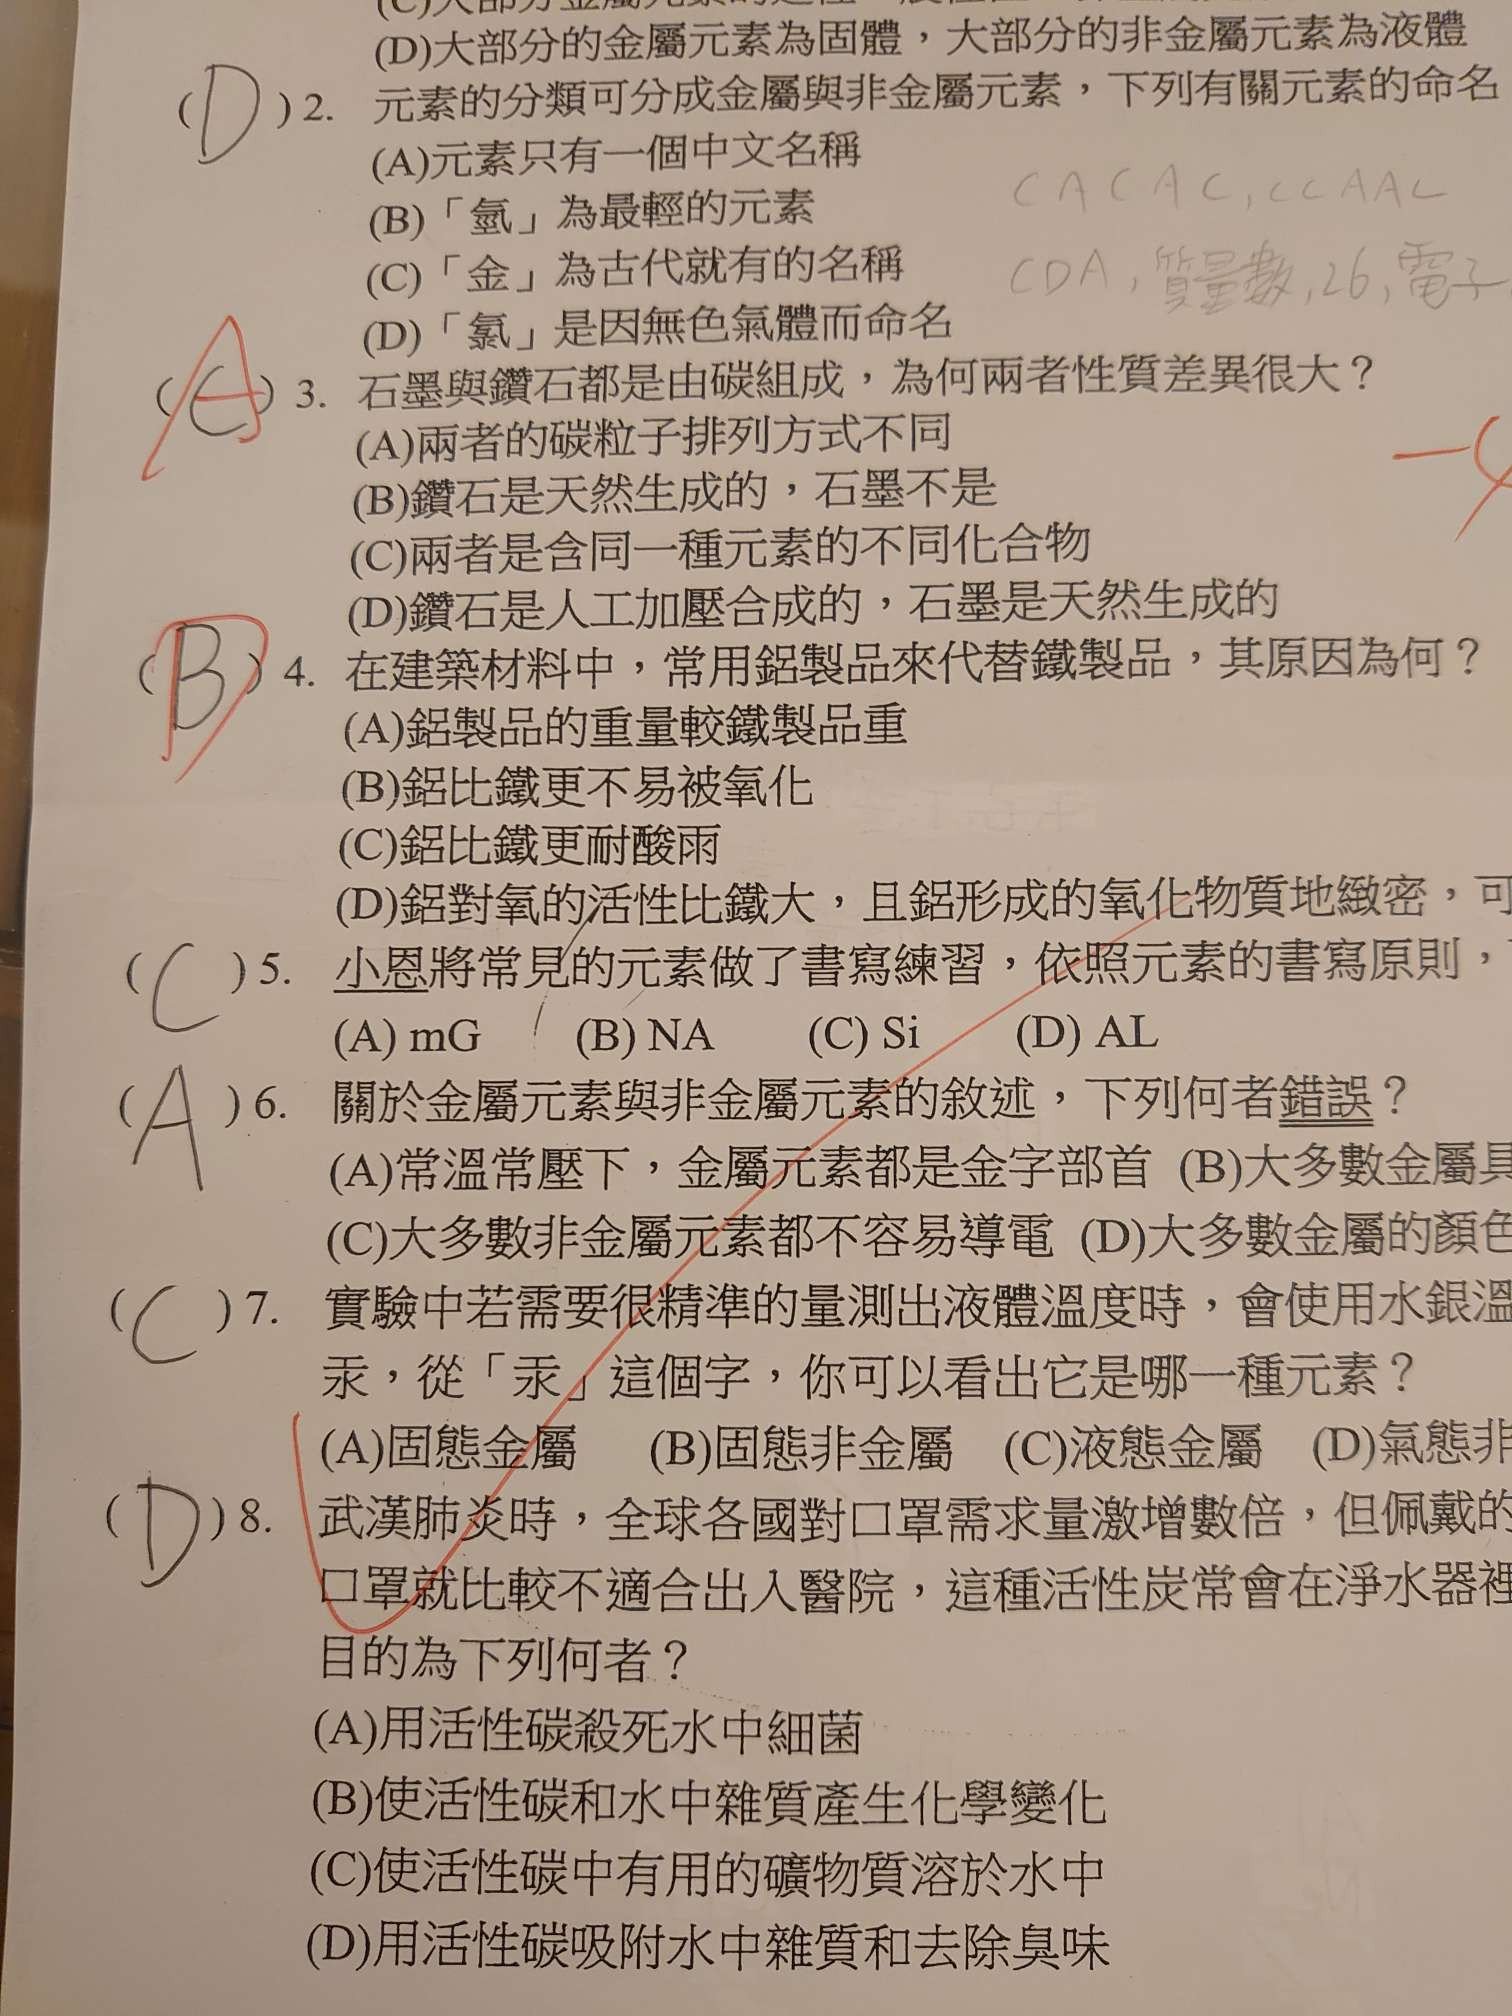 (D)大部分的金屬元素為固體，大部分的非金屬元素為液體
(D)2. 元素的分類可分成金屬與非金屬元素，下列有關元素的命名
(A)元素只有一個中文名稱
(B)「氫」為最輕的元素
(C)「金」為古代就有的名稱
(D)「氯」是因無色氣體而命名
CACAC, CCAAC
CDA, 質量數, 26, 電子
A
(C)3. 石墨與鑽石都是由碳組成，為何兩者性質差異很大？
(A)兩者的碳粒子排列方式不同
(B)鑽石是天然生成的，石墨不是
(C)兩者是含同一種元素的不同化合物
(D)鑽石是人工加壓合成的，石墨是天然生成的
-4
D
(B)4. 在建築材料中，常用鋁製品來代替鐵製品，其原因為何？
(A)鋁製品的重量較鐵製品重
(B)鋁比鐵更不易被氧化
(C)鋁比鐵更耐酸雨
(D)鋁對氧的活性比鐵大，且鋁形成的氧化物質地緻密，可
(C)5. 小恩將常見的元素做了書寫練習，依照元素的書寫原則，
(A) mG (B) NA (C) Si (D) AL
(A)6. 關於金屬元素與非金屬元素的敘述，下列何者錯誤？
(A)常溫常壓下，金屬元素都是金字部首 (B)大多數金屬具
(C)大多數非金屬元素都不容易導電 (D)大多數金屬的顏色
(C)7. 實驗中若需要很精準的量測出液體溫度時，會使用水銀溫
汞，從「汞」這個字，你可以看出它是哪一種元素？
(A)固態金屬 (B)固態非金屬 (C)液態金屬 (D)氣態非
(D)8. 武漢肺炎時，全球各國對口罩需求量激增數倍，但佩戴的
口罩就比較不適合出入醫院，這種活性炭常會在淨水器裡
目的為下列何者？
(A)用活性碳殺死水中細菌
(B)使活性碳和水中雜質產生化學變化
(C)使活性碳中有用的礦物質溶於水中
(D)用活性碳吸附水中雜質和去除臭味